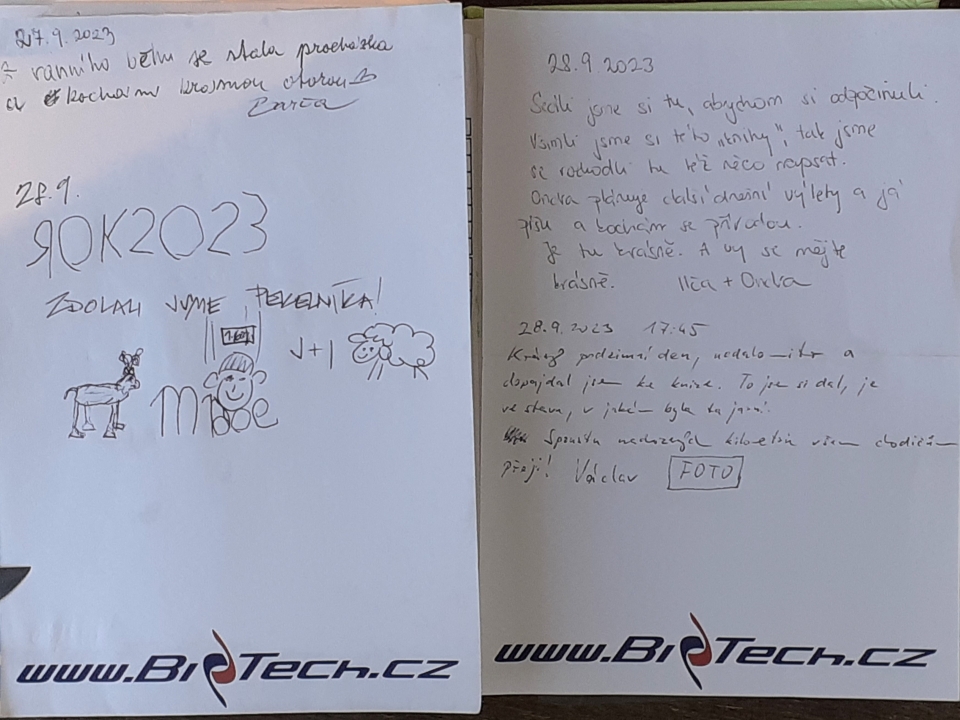 27.9.2023
Z ranního běhu se stala procházka
a kochám krásnou
28.9.
ЯOK2023
ZDOLALI JSME PEKELNÍKA!
J+1
www.BioTech.cz
28.9 2023
Sedli jsme si tu, abychom si odpočinuli.
Všimli jsme si této „knihy", tak jsme
se rozhodli tu též něco napsat.
Ondra plánuje další dnešní výlety a já
píšu a kochám se přírodou.
Je tu krásně. A vy se mějte
krásně. Ilča + Ondra
28.9.2023 17:45
Krásný podzimní den, a
jsem ke knize. To jsem si dal, je
ve stavu, v jakém byla
Spoustu kilometrů všem
přeji! Václav FOTO
www.BioTech.cz